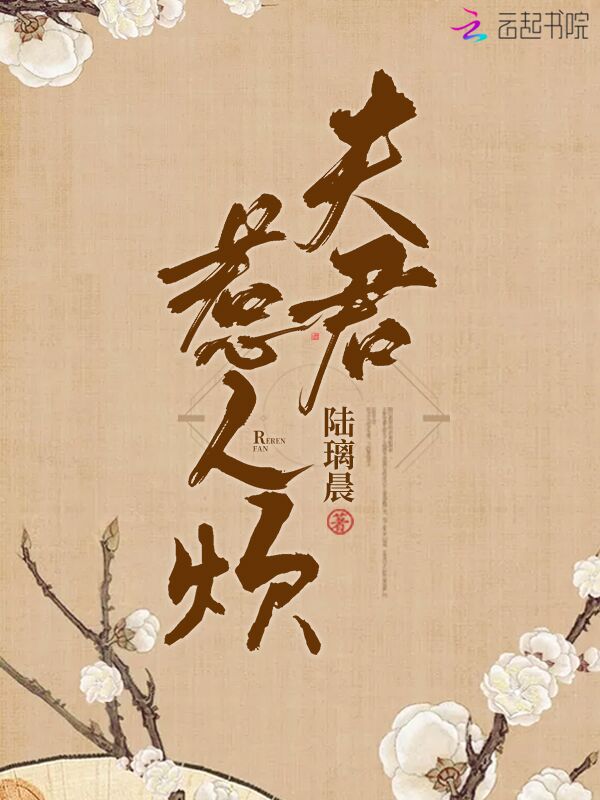 云起书院
夫君
惹人烦
REREN
FAN
陆璃晨
著